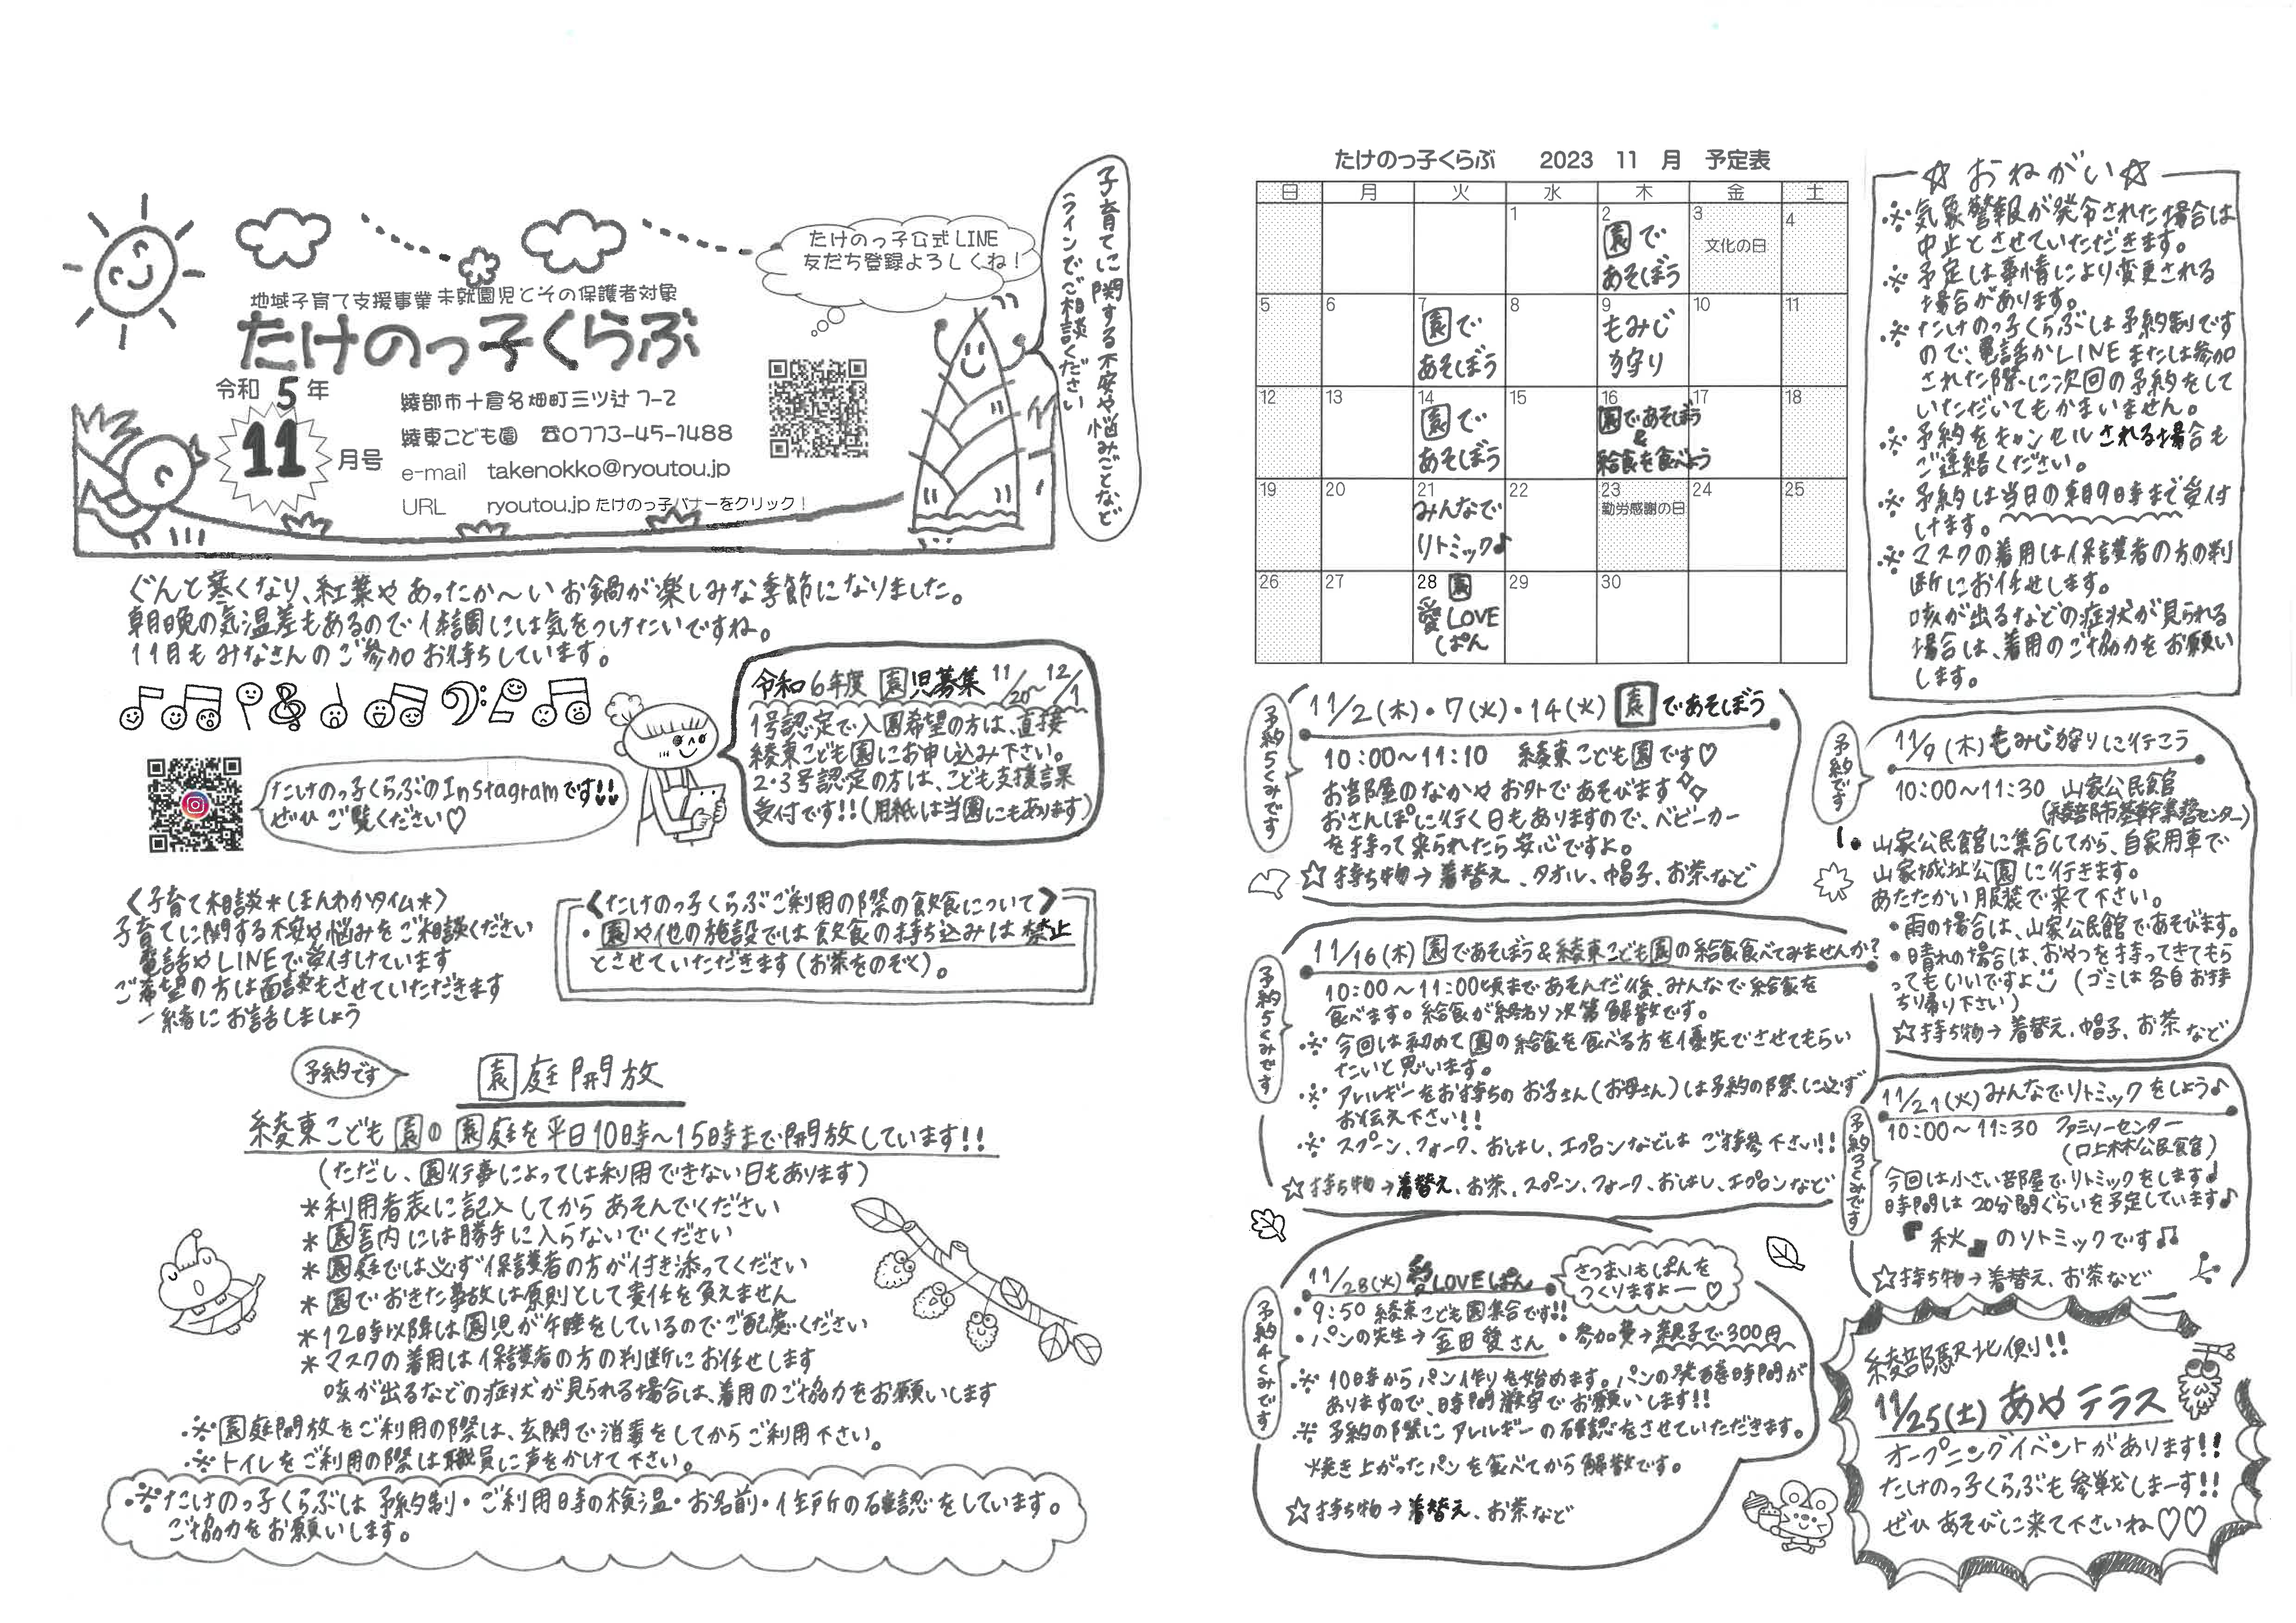 地域子育て支援事業 未就園児とその保護者対象
たけのっ子くらぶ
令和 5 年
11 月号
綾部市十倉名畑町三ツ辻 7-2
綾東こども園 ☎0773-45-1488
e-mail takenokko@ryoutou.jp
URL ryoutou.jp たけのっ子バナーをクリック！
たけのっ子公式LINE
友だち登録よろしくね！
子育てに関する不安や悩みごとなど
ラインでご相談ください
ぐんと寒くなり、紅葉やあったか〜いお鍋が楽しみな季節になりました。
朝晩の気温差もあるので体調には気をつけたいですね。
11月もみなさんのご参加お待ちしています。
令和6年度 園児募集 11/20〜12/1
1号認定で入園希望の方は、直接
綾東こども園にお申し込み下さい。
2・3号認定の方は、こども支援課
受付です!!(用紙は当園にもあります)
たけのっ子くらぶのInstagramです!!
ぜひご覧ください♡
〈子育て相談＊ほんわかタイム＊〉
子育てに関する不安や悩みをご相談ください
電話やLINEで受付けています
ご希望の方は面談もさせていただきます
一緒にお話しましょう
〈たけのっ子くらぶご利用の際の飲食について〉
・園や他の施設では飲食の持ち込みは禁止
とさせていただきます(お茶をのぞく)。
予約です
園庭開放
綾東こども園の園庭を平日10時〜15時まで開放しています!!
(ただし、園行事によっては利用できない日もあります)
＊利用者表に記入してからあそんでください
＊園舎内には勝手に入らないでください
＊園庭では必ず保護者の方が付き添ってください
＊園でおきた事故は原則として責任を負えません
＊12時以降は園児が午睡をしているのでご配慮ください
＊マスクの着用は保護者の方の判断にお任せします
咳が出るなどの症状が見られる場合は、着用のご協力をお願いします
※園庭開放をご利用の際は、玄関で消毒をしてからご利用下さい。
※トイレをご利用の際は職員に声をかけて下さい。
※たけのっ子くらぶは予約制・ご利用時の検温・お名前・住所の確認をしています。
ご協力をお願いします。
たけのっ子くらぶ 2023 11 月 予定表
日 月 火 水 木 金 土
1 2 3 4
園で
あそぼう
文化の日
5 6 7 8 9 10 11
園で
あそぼう
もみじ
狩り
12 13 14 15 16 17 18
園で
あそぼう
園であそぼう
&
給食を食べよう
19 20 21 22 23 24 25
みんなで
リトミック♪
勤労感謝の日
26 27 28 29 30
園
愛LOVE
ぱん
☆おねがい☆
※気象警報が発令された場合は
中止とさせていただきます。
※予定は事情により変更される
場合があります。
※たけのっ子くらぶは予約制です
ので、電話かLINEまたは参加
された際に次回の予約をして
いただいてもかまいません。
※予約をキャンセルされる場合も
ご連絡ください。
※予約は当日の朝9時まで受付
けます。
※マスクの着用は保護者の方の判
断にお任せします。
咳が出るなどの症状が見られる
場合は、着用のご協力をお願い
します。
予約5くみです
11/2(木)・7(火)・14(火) 園であそぼう
10:00〜11:10 綾東こども園です♡
お部屋のなかやお外であそびます
おさんぽに行く日もありますので、ベビーカー
を持って来られたら安心ですよ。
☆持ち物→着替え、タオル、帽子、お茶など
予約です
11/9(木)もみじ狩りに行こう
10:00〜11:30 山家公民館
(綾部市基幹集落センター)
山家公民館に集合してから、自家用車で
山家城址公園に行きます。
あたたかい服装で来て下さい。
・雨の場合は、山家公民館であそびます。
・晴れの場合は、おやつを持ってきてもら
ってもいいですよ (ゴミは各自お持
ち帰り下さい)
☆持ち物→着替え、帽子、お茶など
予約5くみです
11/16(木) 園であそぼう&綾東こども園の給食食べてみませんか?
10:00〜11:00頃まであそんだ後、みんなで給食を
食べます。給食が終わり次第解散です。
※今回は初めて園の給食を食べる方を優先でさせてもらい
たいと思います。
※アレルギーをお持ちのお子さん(お母さん)は予約の際に必ず
お伝え下さい!!
※スプーン、フォーク、おはし、エプロンなどはご持参下さい!!
☆持ち物→着替え、お茶、スプーン、フォーク、おはし、エプロンなど
予約3くみです
11/21(火)みんなでリトミックをしよう♪
10:00〜11:30 ファミリーセンター
(口上林公民館)
今回は小さい部屋でリトミックをします♪
時間は20分間ぐらいを予定しています♪
『秋』のリトミックです♫
☆持ち物→着替え、お茶など
予約4くみです
11/28(火)愛LOVEぱん
さつまいもぱんを
つくりますよー♡
・9:50 綾東こども園集合です!!
・パンの先生→金田愛さん ・参加費→親子で300円
※10時からパン作りを始めます。パンの発酵時間が
ありますので、時間厳守でお願いします!!
※予約の際にアレルギーの確認をさせていただきます。
焼き上がったパンを食べてから解散です。
☆持ち物→着替え、お茶など
綾部駅北側!!
11/25(土)あやテラス
オープニングイベントがあります!!
たけのっ子くらぶも参戦しまーす!!
ぜひあそびに来て下さいね♡♡